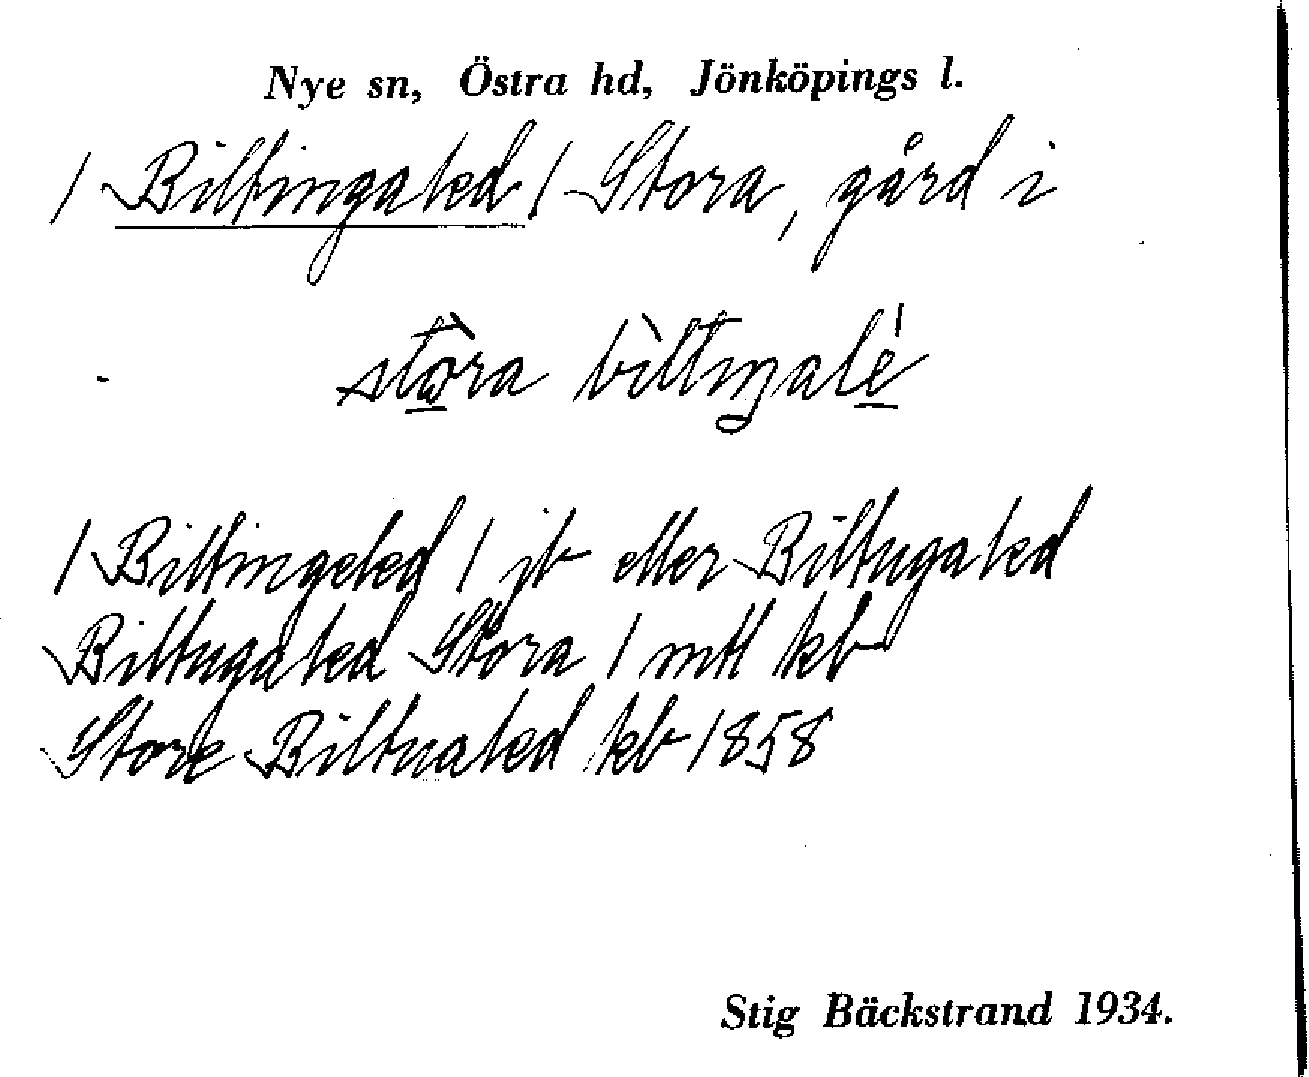 Nye sn, Östra hd, Jönköpings l.
/ Biltingaled / Stora, gård i
stòra bìltiŋalé
/ Biltingeled / jb eller Biltugaled
Biltugaled Stora / mtl kb
Stora Biltualed kb 1858
Stig Bäckstrand 1934.